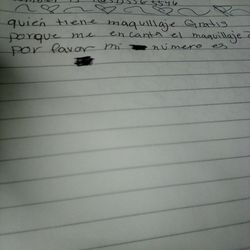 quién tiene maquillaje Gratis
porque me encanta el maquillaje
por favor mi número es